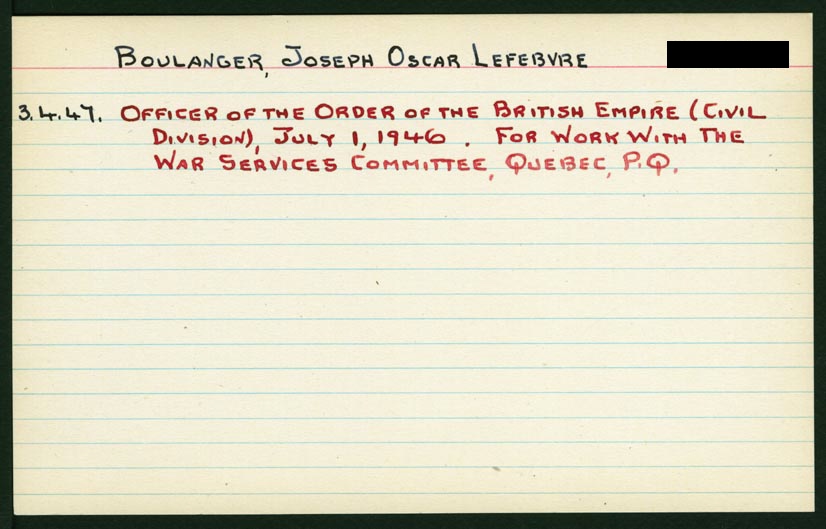 BOULANGER, JOSEPH OSCAR LEFEBVRE
3.4.47. OFFICER OF THE ORDER OF THE BRITISH EMPIRE (CIVIL
DIVISION), JULY 1, 1946. FOR WORK WITH THE
WAR SERVICES COMMITTEE, QUEBEC, P.Q.